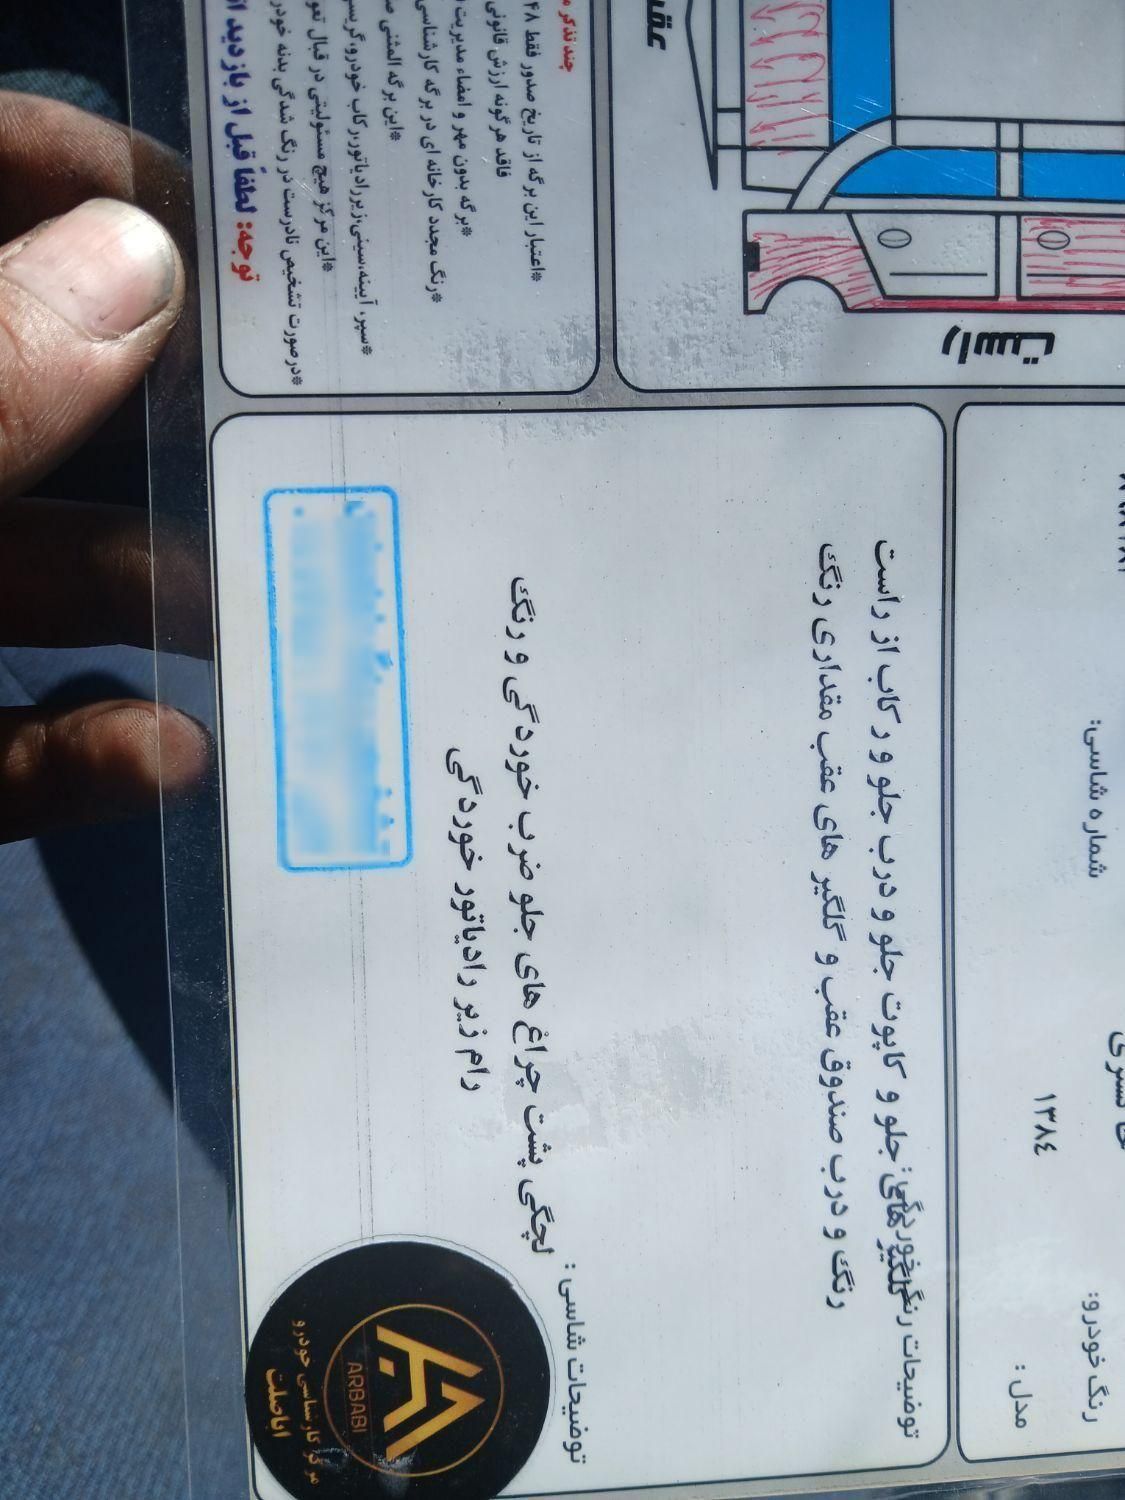 رنگ خودرو:
مدل : ۱۳۸٤
شماره شاسی:
راست
چند تذکر
*اعتبار این برگه از تاریخ صدور فقط ۴۸
فاقد هرگونه ارزش قانونی
*برگه بدون مهر و امضاء مدیریت
*رنگ مجدد کارخانه ای در برگه کارشناسی
*این برگه المثنی
*سپر، آیینه،سینی،زیررادیاتور،رکاب خودرو،گریس
*این مرکز هیچ مسئولیتی در قبال
*درصورت تشخیص نادرست در رنگ شدگی بدنه خودر
توجه: لطفاً قبل از بازدید
توضیحات رنگ خوردگی :
گلگیر های جلو و کاپوت جلو و درب جلو و رکاب از راست
رنگ و درب صندوق عقب و گلگیر های عقب مقداری رنگ
توضیحات شاسی :
لچگی پشت چراغ های جلو ضرب خوردگی و رنگ
رام زیر رادیاتور خوردگی
ARBABI
مرکز کارشناسی خودرو
اباصلت